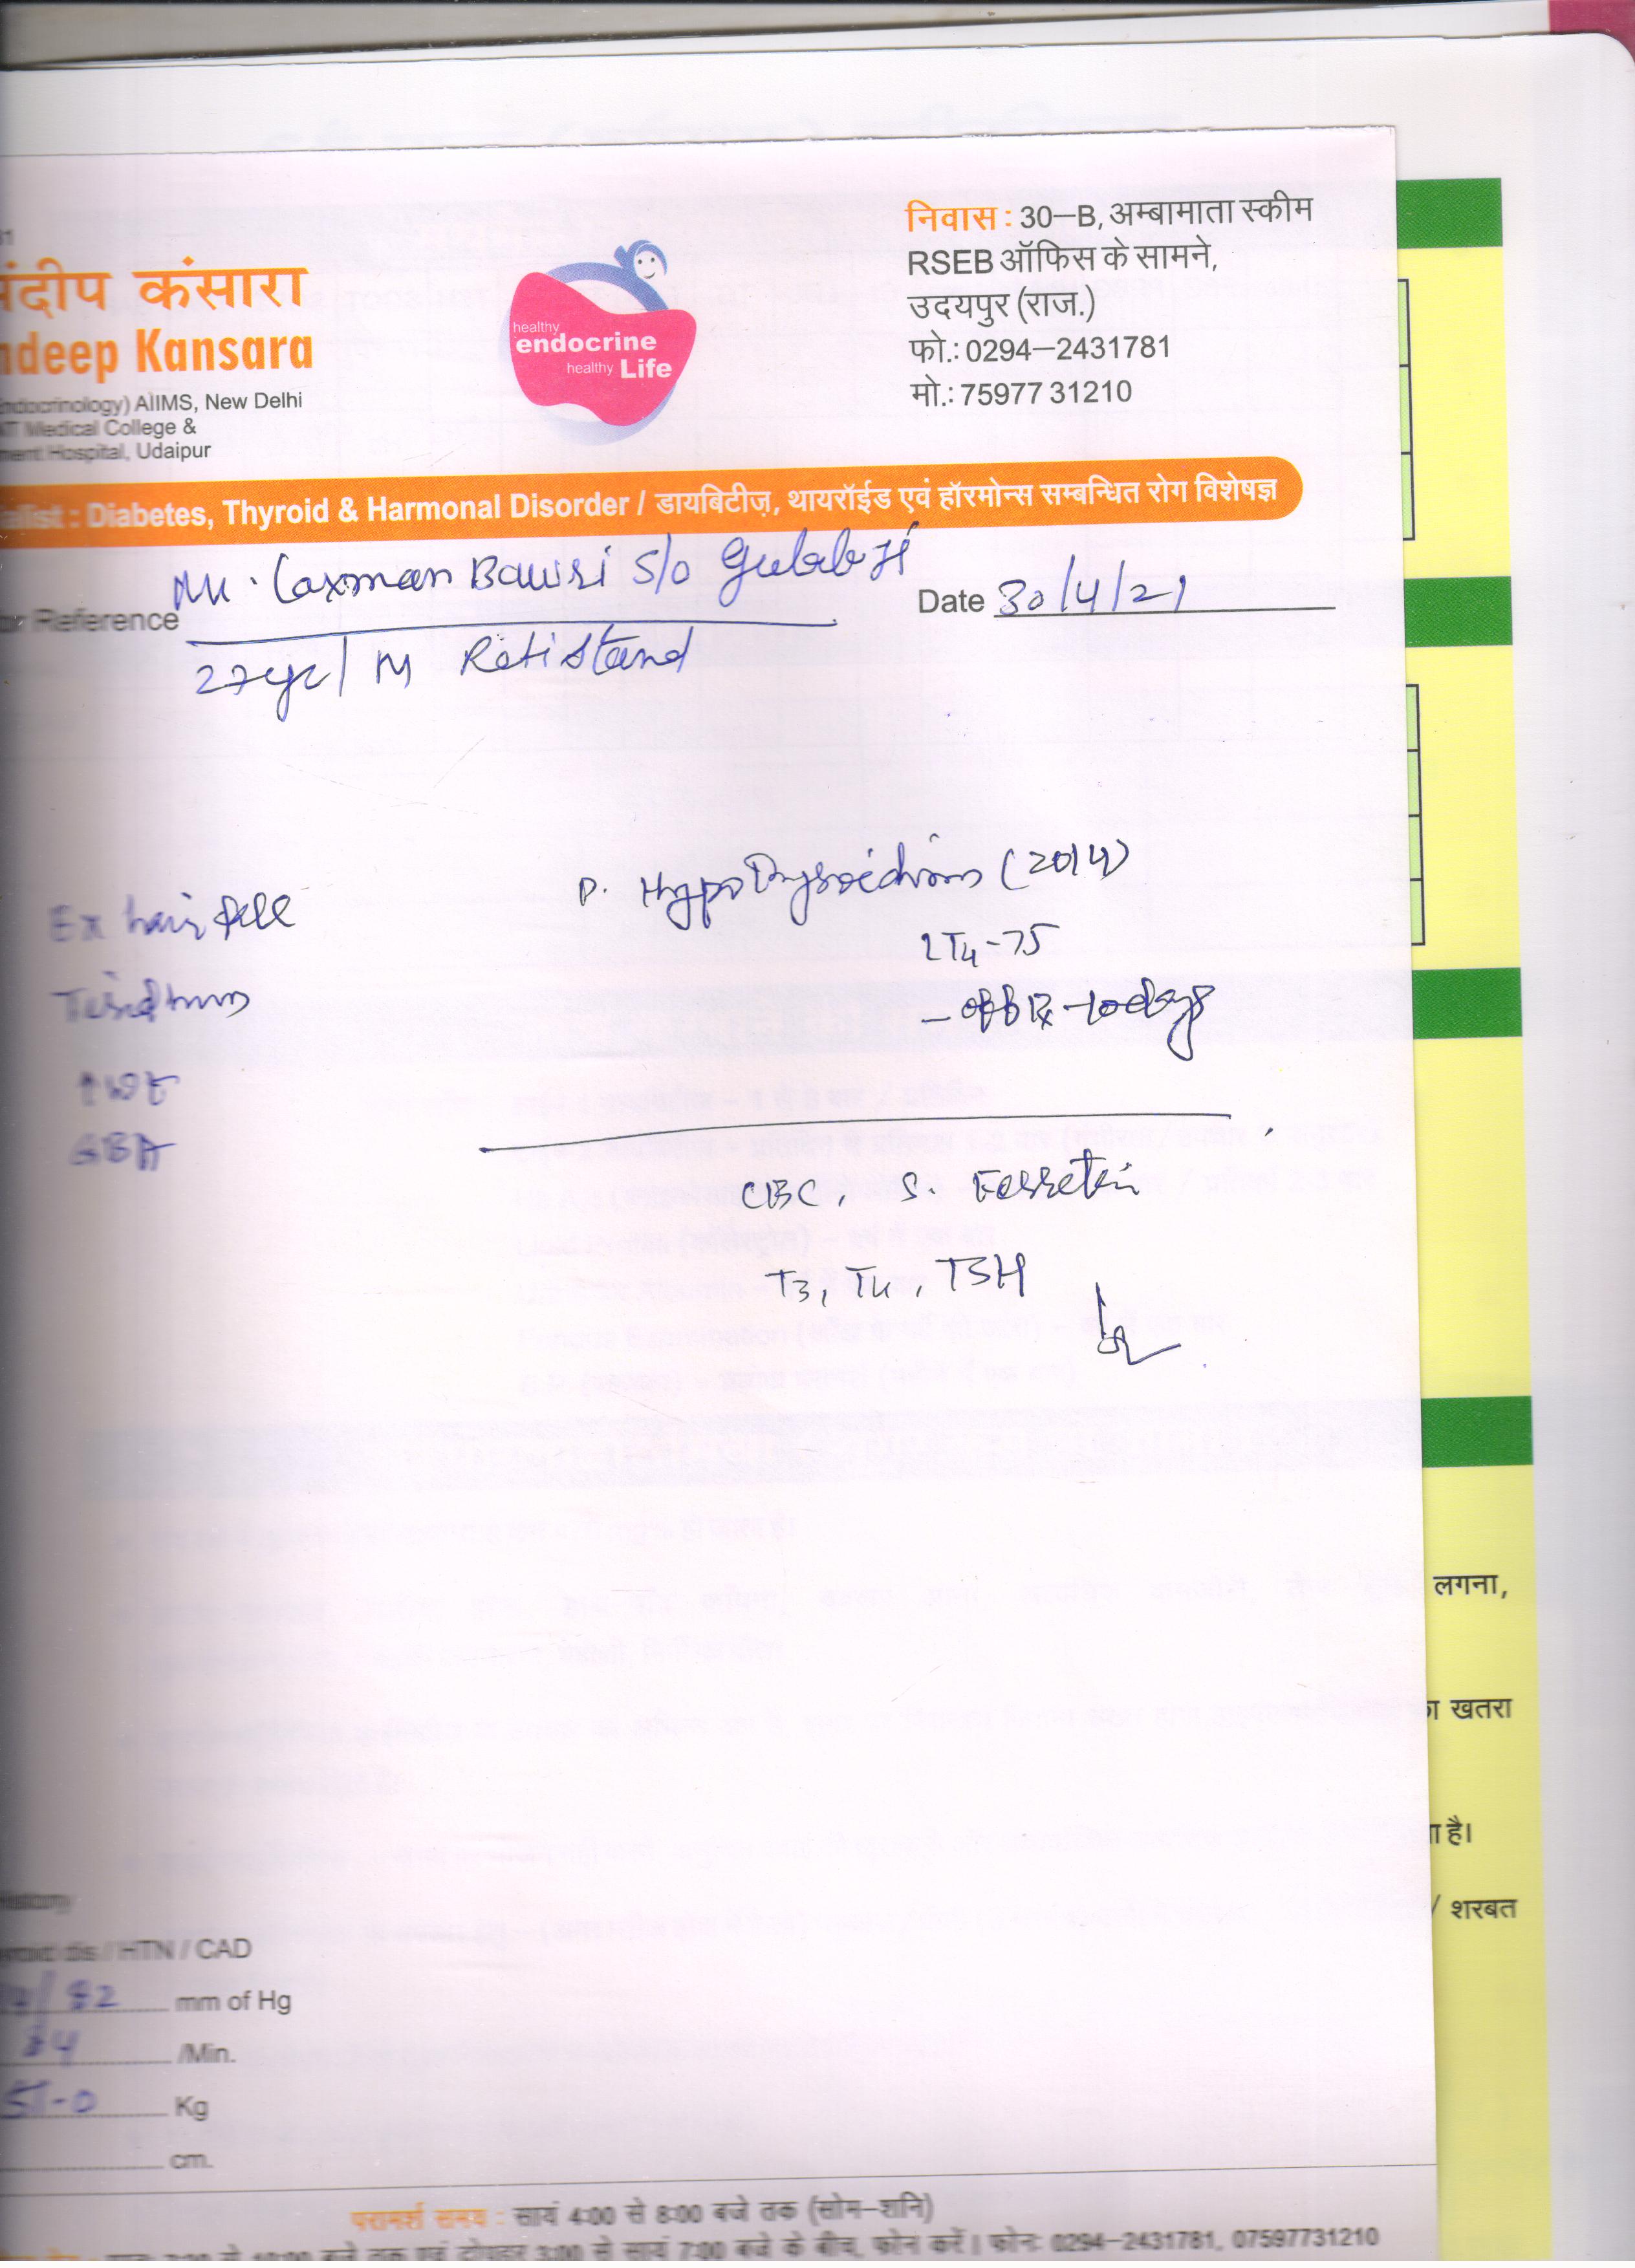 संदीप कंसारा
ndeep Kansara
Endocrinology) AIIMS, New Delhi
NT Medical College &
ment Hospital, Udaipur
healthy
endocrine
healthy Life
निवास : 30–B, अम्बामाता स्कीम
RSEB ऑफिस के सामने,
उदयपुर (राज.)
फो.: 0294–2431781
मो.: 75977 31210
ialist : Diabetes, Thyroid & Harmonal Disorder / डायबिटीज़, थायरॉईड एवं हॉरमोन्स सम्बन्धित रोग विशेषज्ञ
Mr. Laxman Bawri S/o Gulab Ji
or Reference
Date 30/4/21
27yr/M Reti Stand
P. Hypothyroidism (2014)
Ex hair fall
LT4-75
Tiredness
- off Rx - 10 days
↑ wt
GBA
CBC, S. Ferretin
T3, T4, TSH
लगना,
का खतरा
ता है।
/ शरबत
History
dis / HTN / CAD
/82 mm of Hg
84 /Min.
51-0 Kg
cm.
परामर्श समय : सायं 4:00 से 8:00 बजे तक (सोम–शनि)
से 10:00 बजे तक एवं दोपहर 3:00 से सायं 7:00 बजे के बीच, फोन करें। फोन: 0294–2431781, 07597731210